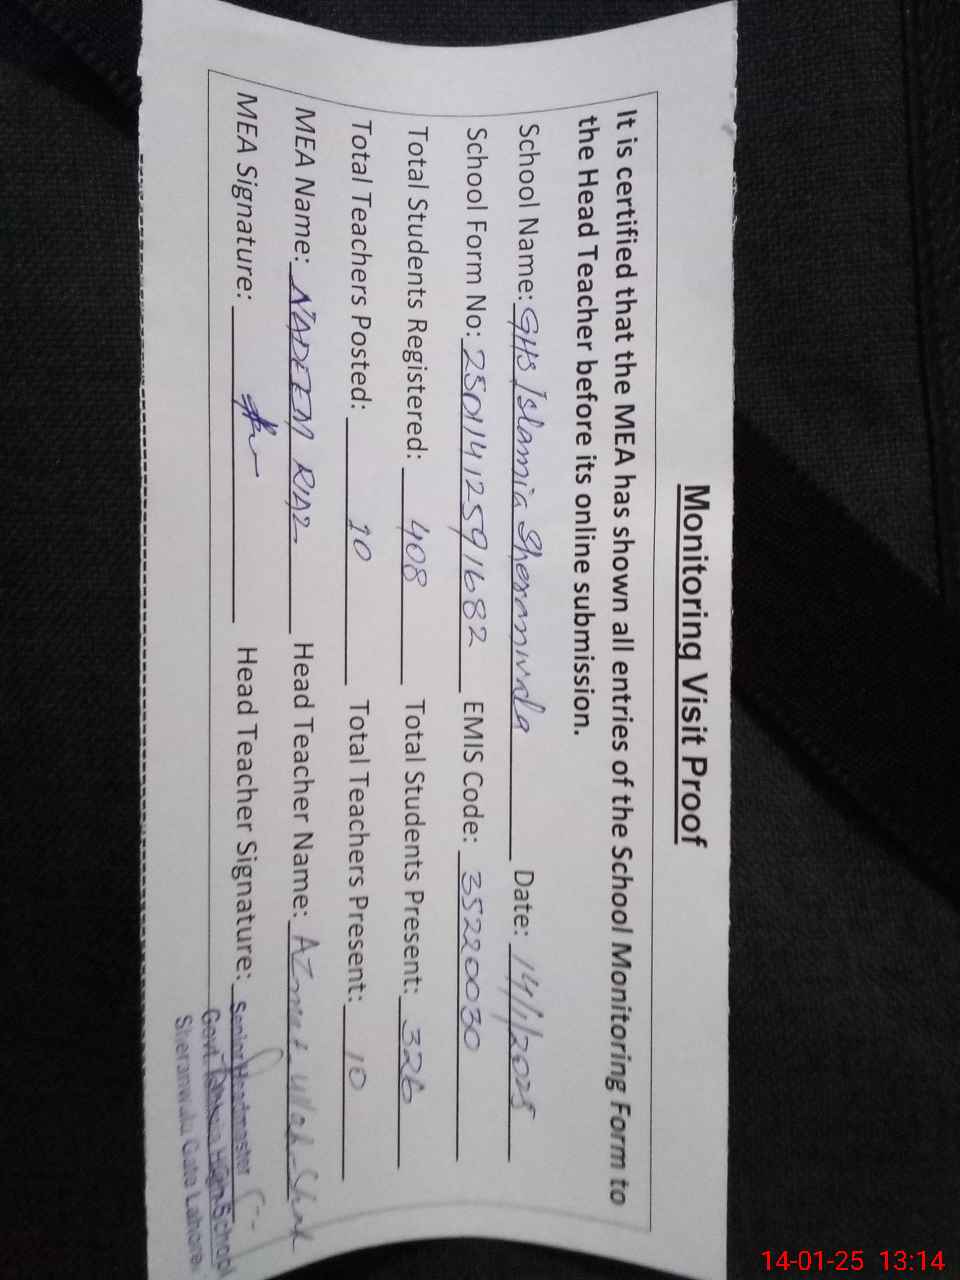 Monitoring Visit Proof
It is certified that the MEA has shown all entries of the School Monitoring Form to
the Head Teacher before its online submission.
School Name: GHS Islamia Sheranwala Date: 14/1/2025
School Form No: 25011412591682 EMIS Code: 35220030
Total Students Registered: 408 Total Students Present: 326
Total Teachers Posted: 10 Total Teachers Present: 10
MEA Name: NADEEM RIAZ Head Teacher Name: Azmat Ullah Shah
MEA Signature: Head Teacher Signature:
Senior Headmaster
Govt. Islamia High School
Sheranwala Gate Lahore.
14-01-25 13:14